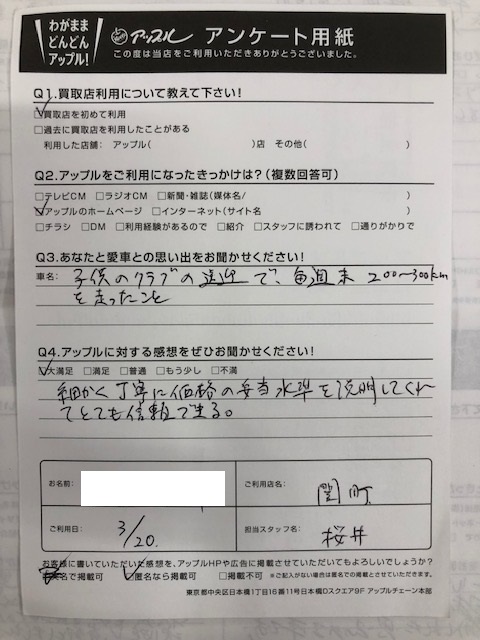 わがまま
どんどん
アップル!
アップル アンケート用紙
この度は当店をご利用いただきありがとうございました。
Q1.買取店利用について教えて下さい!
□買取店を初めて利用
□過去に買取店を利用したことがある
利用した店舗: アップル( )店 その他( )
Q2.アップルをご利用になったきっかけは?(複数回答可)
□テレビCM □ラジオCM □新聞・雑誌(媒体名/ )
□アップルのホームページ □インターネット(サイト名 )
□チラシ □DM □利用経験があるので □紹介 □スタッフに誘われて □通りがかりで
Q3.あなたと愛車との思い出をお聞かせください!
車名: 子供のクラブの送迎で、毎週末 200〜300km
を走ったこと
Q4.アップルに対する感想をぜひお聞かせください!
□大満足 □満足 □普通 □もう少し □不満
細かく丁寧に価格の妥当水準を説明してくれ
てとても信頼できる。
お名前: ご利用店名: 関町
ご利用日: 3/20. 担当スタッフ名: 桜井
お客様に書いていただいた感想を、アップルHPや広告に掲載させていただいてもよろしいでしょうか?
名で掲載可 □匿名なら掲載可 □掲載不可 ※ご記入がない場合は匿名での掲載とさせていただきます。
東京都中央区日本橋1丁目16番11号日本橋Dスクエア9F アップルチェーン本部